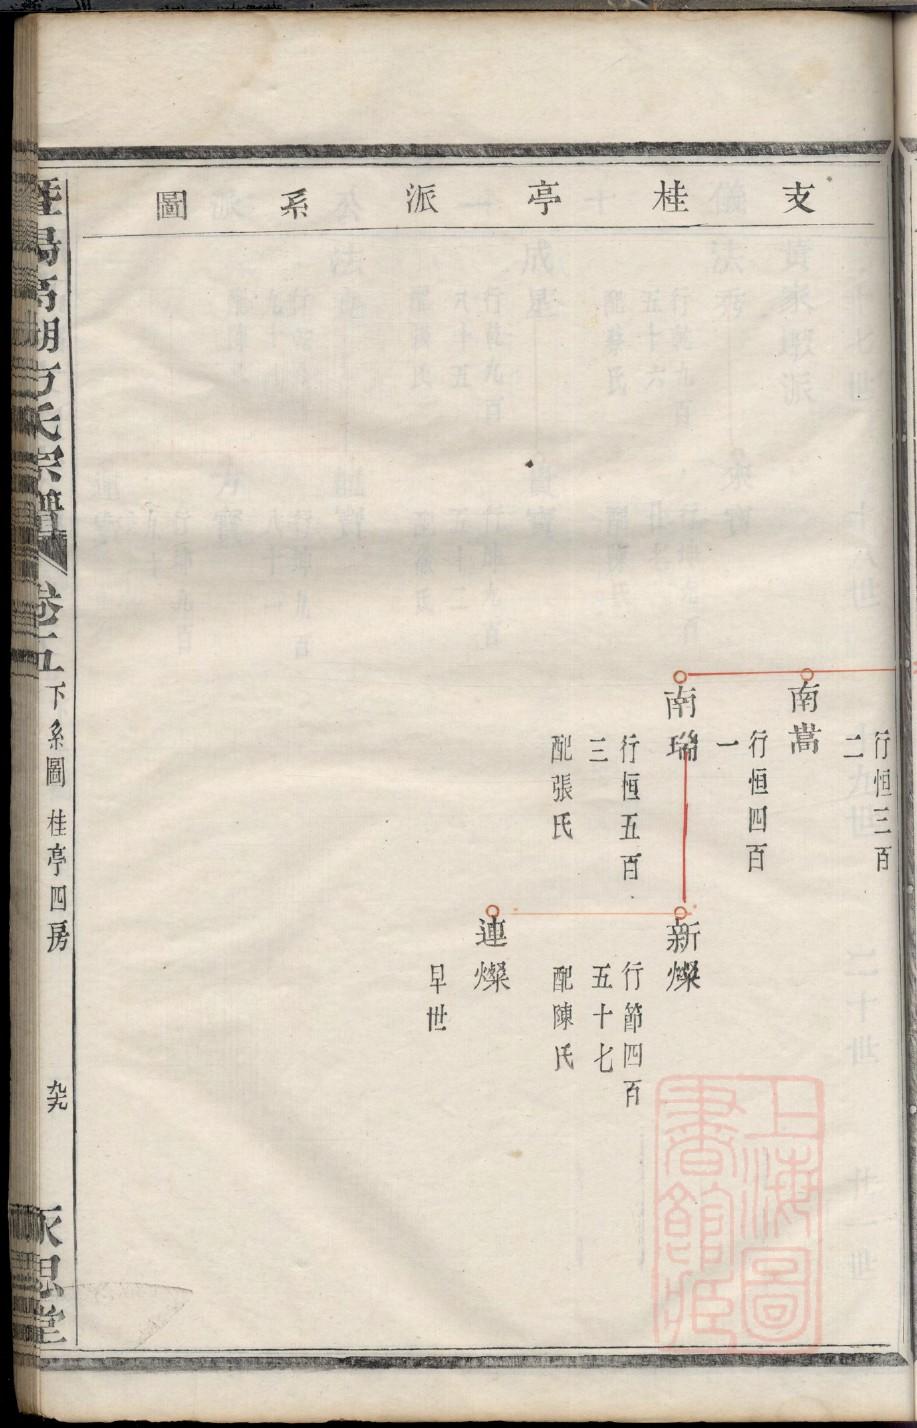 支桂亭派系圖
行恒三百
二
南嵩
行恒四百
一
南瑞
行恒五百
三
配張氏
新燦
行節四百
五十七
配陳氏
連燦
早世
暨陽高湖方氏宗譜
卷一五
下系圖
桂亭四房
九九
永思堂
上海圖
書館藏